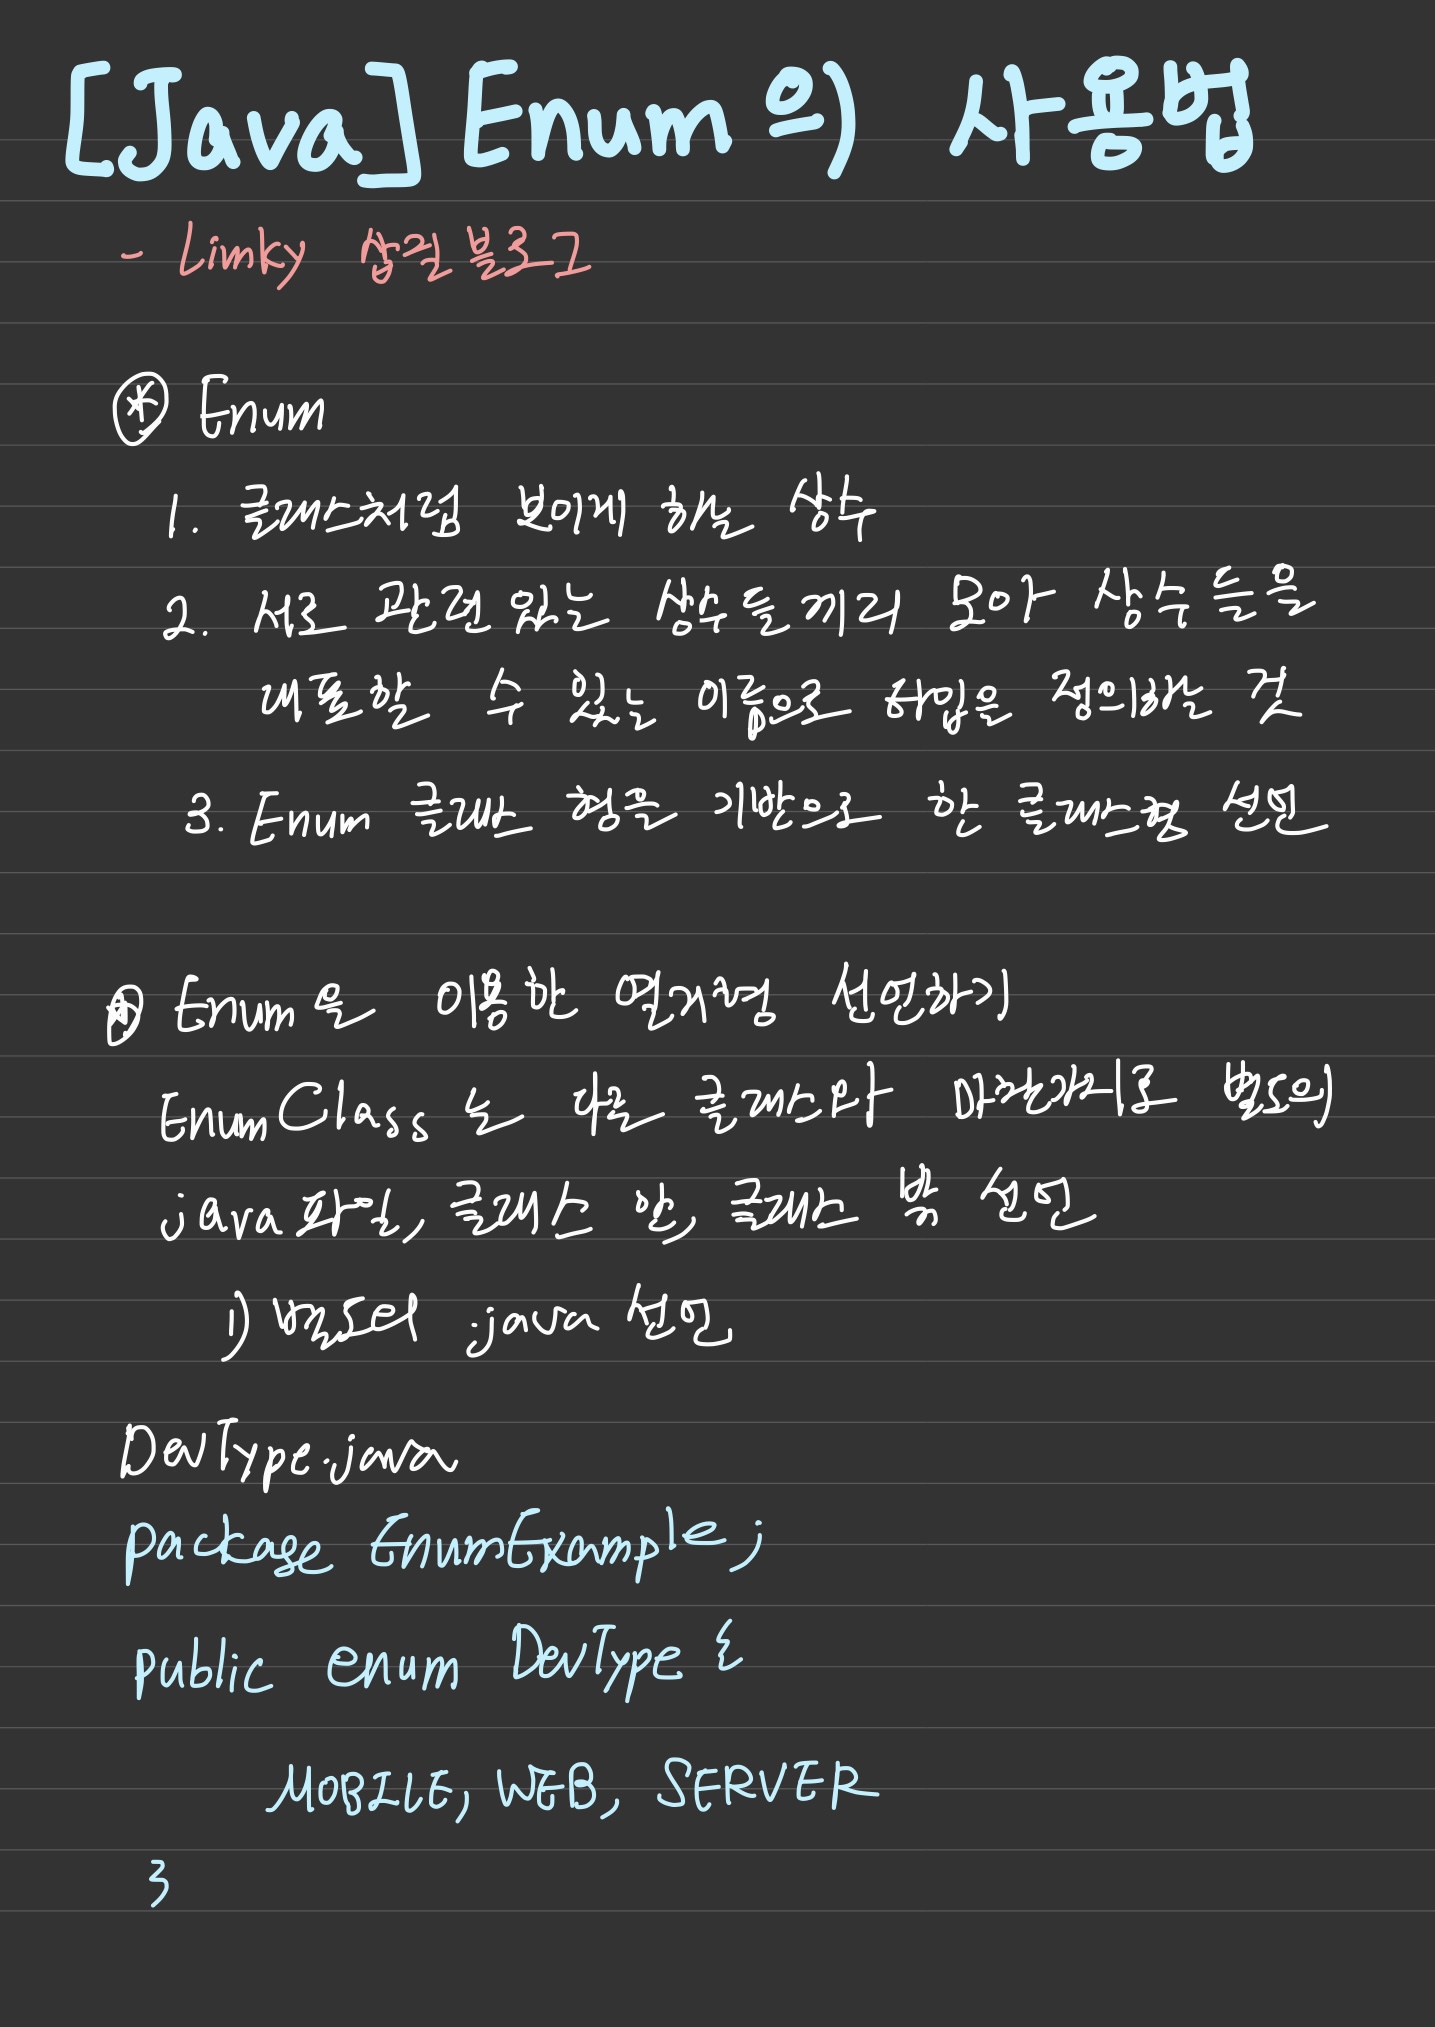 [Java] Enum의 사용법
- Limky 삽질블로그
* Enum
1. 클래스처럼 보이게 하는 상수
2. 서로 관련있는 상수들끼리 모아 상수들을
대표할 수 있는 이름으로 타입을 정의하는 것
3. Enum 클래스 형을 기반으로 한 클래스형 선언
* Enum을 이용한 열거형 선언하기
EnumClass는 다른 클래스와 마찬가지로 별도의
java파일, 클래스 안, 클래스 밖 선언
1) 별도의 .java 선언
DevType.java
package EnumExample;
public enum DevType {
MOBILE, WEB, SERVER
}